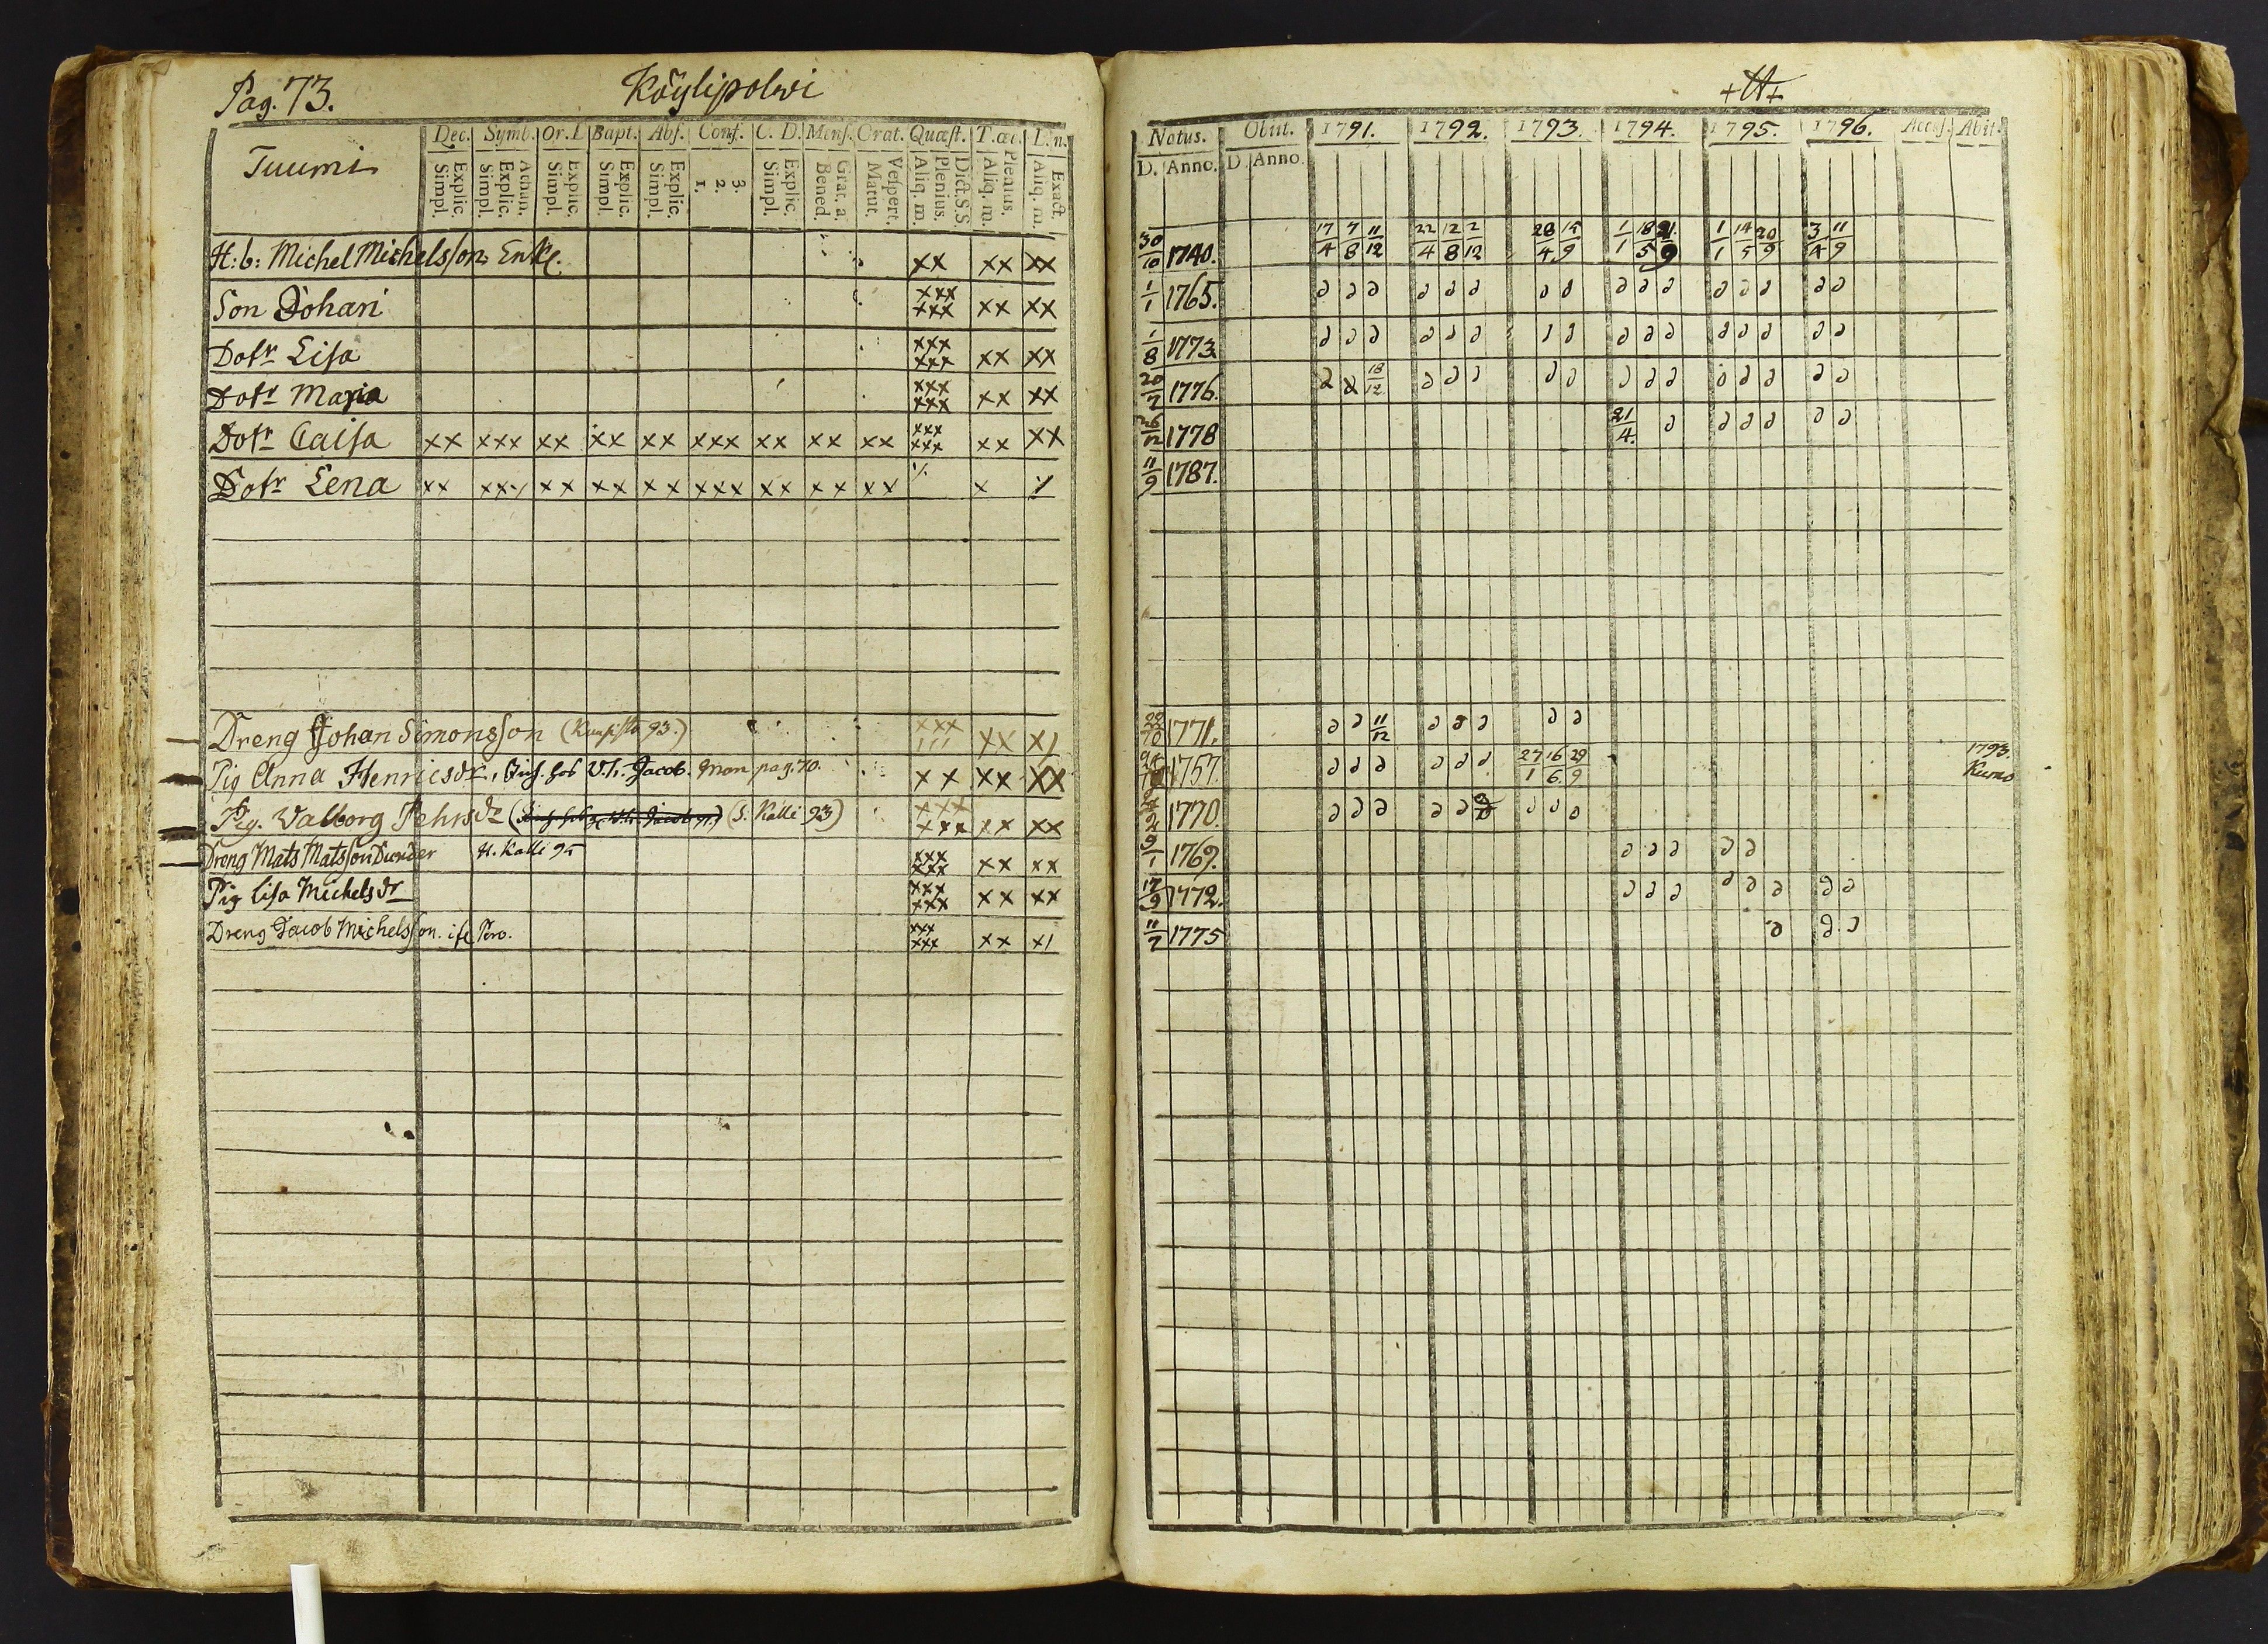 Pag. 73. Köylipolwi
Tuumi Dec. Symb. Or. D. Bapt. Abs. Conf. C. D. Mens. Orat. Quæst. T. œc. L. n.
Explic. Simpl. Athan. Explic. Simpl. Explic. Simpl. Explic. Simpl. Explic. Simpl. 3. 2. 1. Explic. Simpl. Grat. a. Bened. Vespert. Matut. Dict. S. S. Plenius. Aliq. m. Plenius. Aliq. m. Exact. Aliq. m.
H: b: Michel Michelssons Enka xx xx xx
Son Johan xxx xxx xx xx
Dotr Lisa xxx xxx xx xx
Dotr Maria xxx xxx xx xx
Dotr Caisa xx xxx xx xx xx xxx xx xx xx xxx xxx xx xx
Dotr Lena xx xxx xx xx xx xxx xx xx xx x
Dreng Johan Simonsson 93.) xxx xx x/
Pig Anna Henricsdr. Jacob. Man pag. 70. xx xx xx
Pig. Walborg Pehrsdr (S. Källi 93) xxx xxx xx xx
Dreng Mats Matsson H. Kalli 95 xxx xxx xx xx
Pig Lisa Michelsdr xxx xxx xx xx
Dreng Jacob Michelsson. xxx xxx xx x/
Natus. Obiit. 1791. 1792. 1793. 1794. 1795. 1796. Access. Abit.
D. Anno. D. Anno.
30/10 1740. 17/4 7/8 11/12 22/4 12/8 2/12 28/4 15/9 1/1 18/5 21/9 1/1 14/5 20/9 3/4 11/9
1/1 1765.
1/8 1773.
20/2 1776. 18/12
26/12 1778 21/4.
11/9 1787.
1771. 11/12
1757. 27/1 16/6 29/9 1793. Kumo
1770.
9/1 1769.
17/9 1772.
11/7 1775